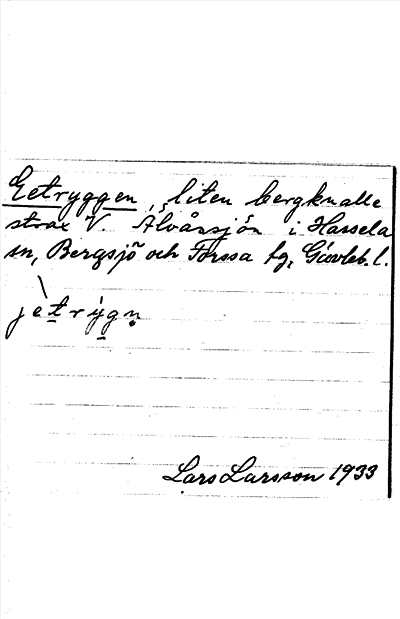 Getryggen, liten bergknalle
strax V. Älvåssjön i Hassela
sn, Bergsjö och Forssa tg, Gävleb. l.
jètrỳgn̥
Lars Larsson 1933